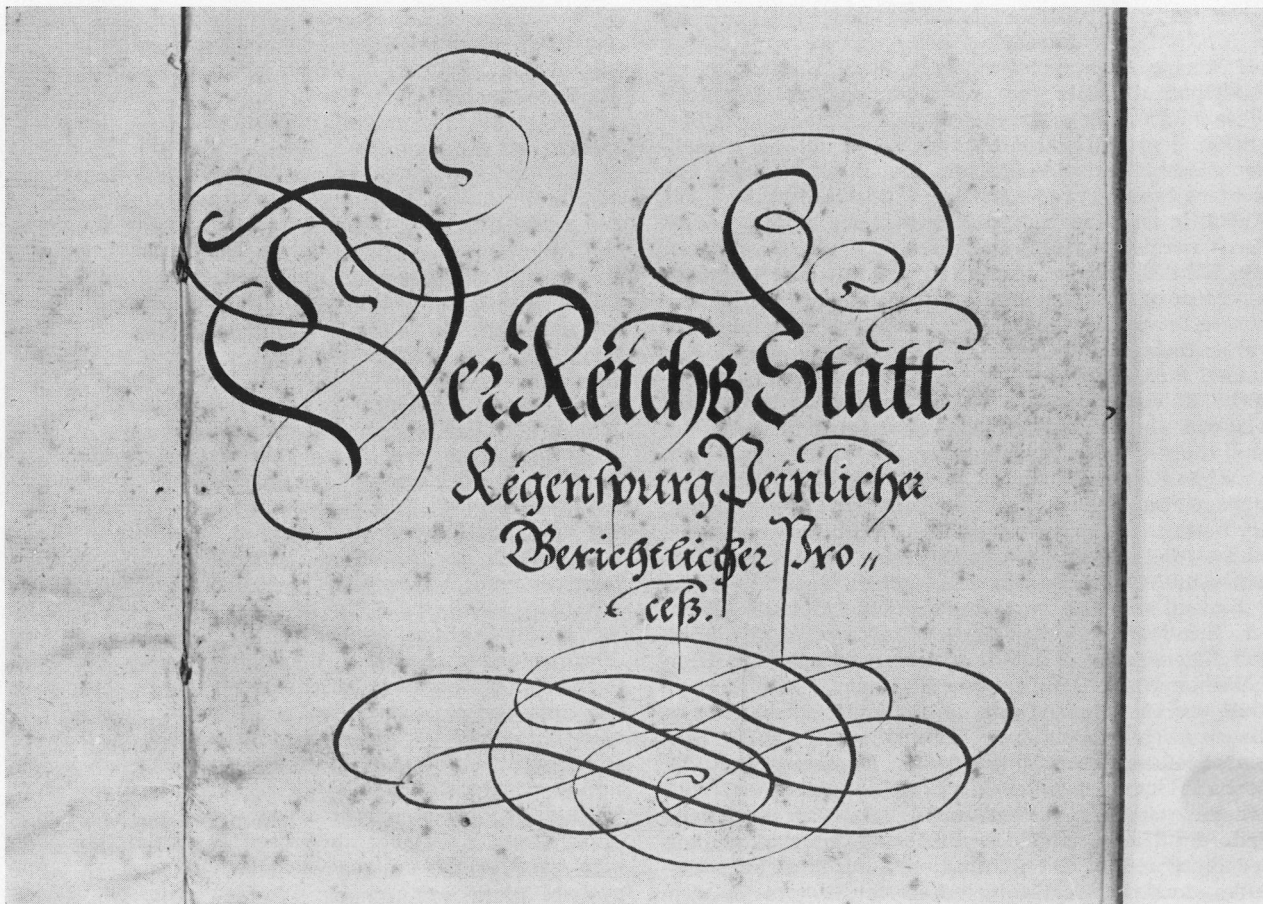 Der Reichß Statt
Regenspurg Peinlicher
Gerichtlicher Pro〃
ceß.